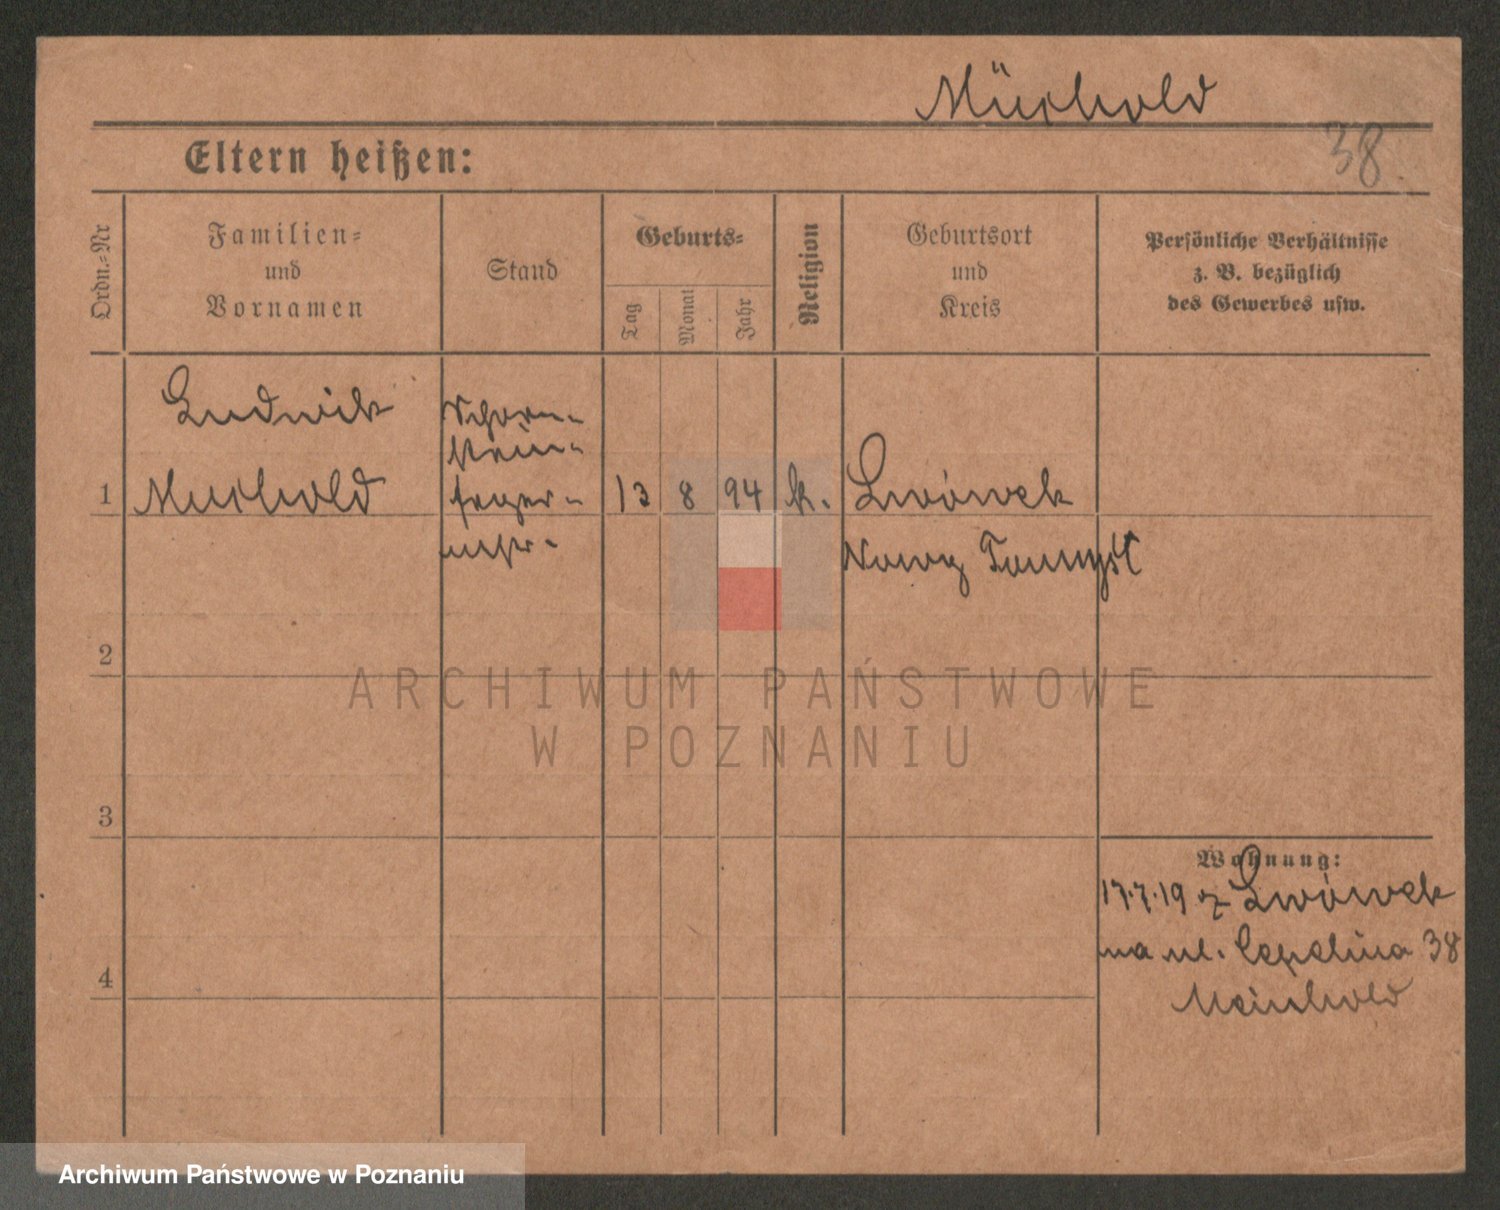 Müxhold
38
Eltern heißen:
Ordn.-Nr
Familien-
und
Vornamen
Stand
Geburts-
Tag
Monat
Jahr
Religion
Geburtsort
und
Kreis
Persönliche Verhältnisse
z. B. bezüglich
des Gewerbes usw.
Ludwik
Muxhold
Schorn-
stein-
feger-
1
13
8
94
k.
Lwówek
Nowy Tomyśl
2
ARCHIWUM PAŃSTWOWE
W POZNANIU
3
Wohnung:
17.7.19 z Lwówek
na ul.
38
4
Archiwum Państwowe w Poznaniu